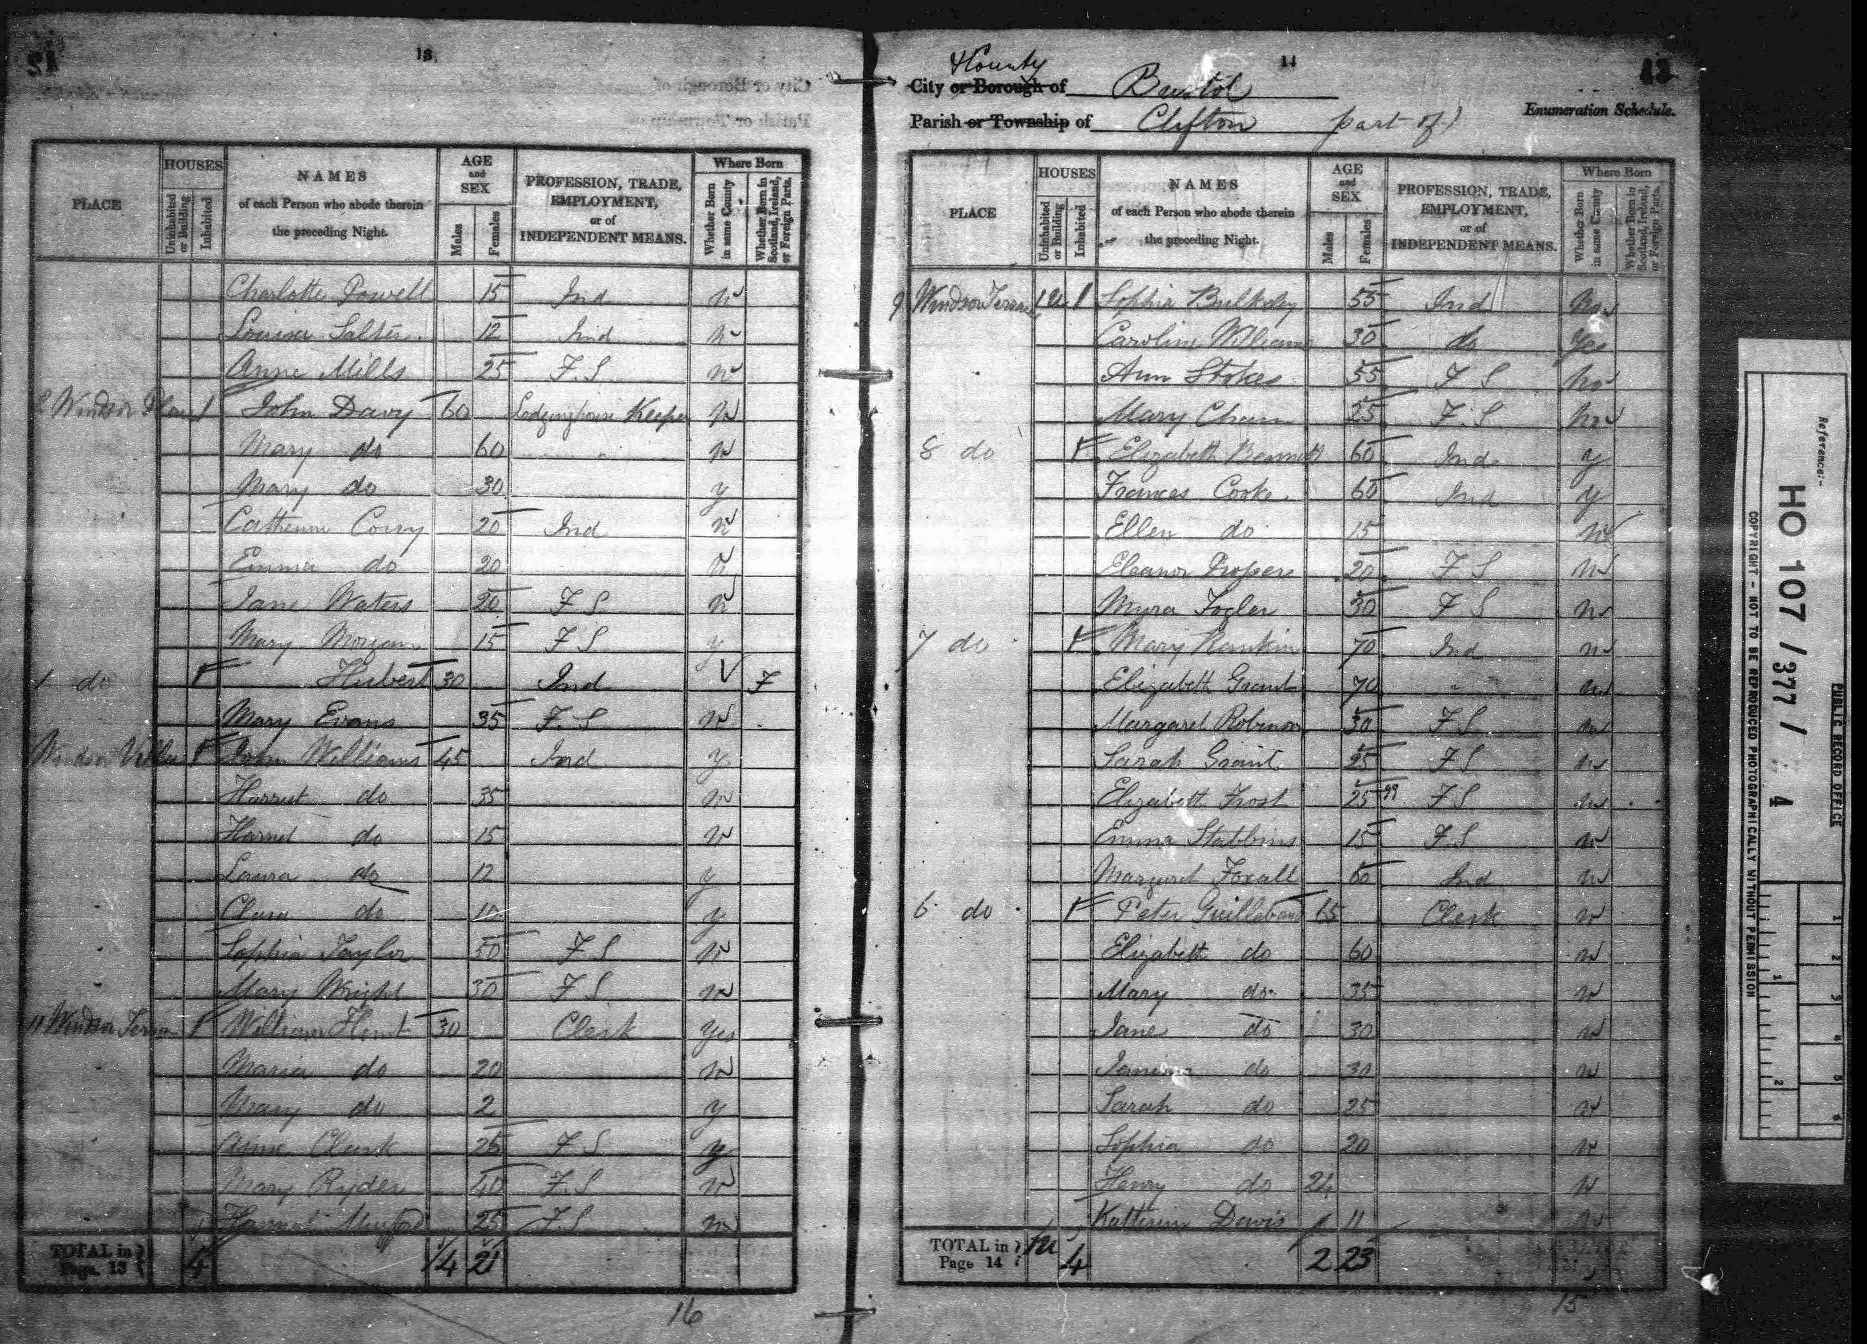 13
PLACE
HOUSES
Uninhabited or Building
Inhabited
NAMES
of each Person who abode therein
the preceding Night.
AGE
and
SEX
Males
Females
PROFESSION, TRADE,
EMPLOYMENT,
or of
INDEPENDENT MEANS.
Where Born
Whether Born in same County
Whether Born in Scotland, Ireland, or Foreign Parts.
Charlotte Powell 15 Ind n
Louisa Salter 12 Ind n
Anne Mills 25 F.S n
2 Windsor Place 1 John Davy 60 Lodginghouse Keeper N
Mary do 60 N
Mary do 30 y
Catherine Corry 20 Ind N
Emma do 20 N
Jane Waters 20 F S N
Mary Morgan 15 F S y
1 do 1 Hubert 30 Ind F
Mary Evans 35 F. S N
Windsor Villa 1 John Williams 45 Ind y
Harriet do 35 N
Harriet do 15 N
Laura do 12 y
Clara do 10 y
Sophia Taylor 50 F S N
Mary Wright 30 F S N
11 Windsor Terrace 1 William Hunt 30 Clerk Yes
Maria do 20 N
Mary do 2 y
Anne Clark 25 F S y
Mary Ryder 40 F.S N
Harriet 25 F.S N
TOTAL in
Page 13
4 4 21
16
14
& County
City or Borough of Bristol
Parish or Township of Clifton part of)
Enumeration Schedule.
PLACE
HOUSES
Uninhabited or Building
Inhabited
NAMES
of each Person who abode therein
the preceding Night.
AGE
and
SEX
Males
Females
PROFESSION, TRADE,
EMPLOYMENT,
or of
INDEPENDENT MEANS.
Where Born
Whether Born in same County
Whether Born in Scotland, Ireland, or Foreign Parts.
9 Windsor Terrace 1U 1 Sophia Bulkeley 55 Ind No
Caroline Williams 30 do Yes
Ann Stokes 55 F S No
Mary 25 F. S No
8 do 1 Elizabeth Bennett 60 Ind y
Frances Cooke 60 Ind y
Ellen do 15 N
Eleanor Prosper 20 F S N
Myra 30 F S N
7 do 1 Mary Rankin 70 Ind N
Elizabeth Grant 70 N
Margaret Robinson 30 F S N
Sarah Grant 25 F S N
Elizabeth Frost 25 F S N
Emma Stabbins 15 F S N
Margaret Foxall 60 Ind N
6 do 1 Peter Guillebaud 65 Clerk N
Elizabeth do 60 N
Mary do 35 N
Jane do 30 N
Jemima do 30 N
Sarah do 25 N
Sophia do 20 N
Henry do 24 N
Katherine Davis 11 N
TOTAL in
Page 14
1U 4 2 23
15
Reference:-
HO 107 / 377 / 4
PUBLIC RECORD OFFICE
COPYRIGHT - NOT TO BE REPRODUCED PHOTOGRAPHICALLY WITHOUT PERMISSION
1 2 3 4 5 6
1 2